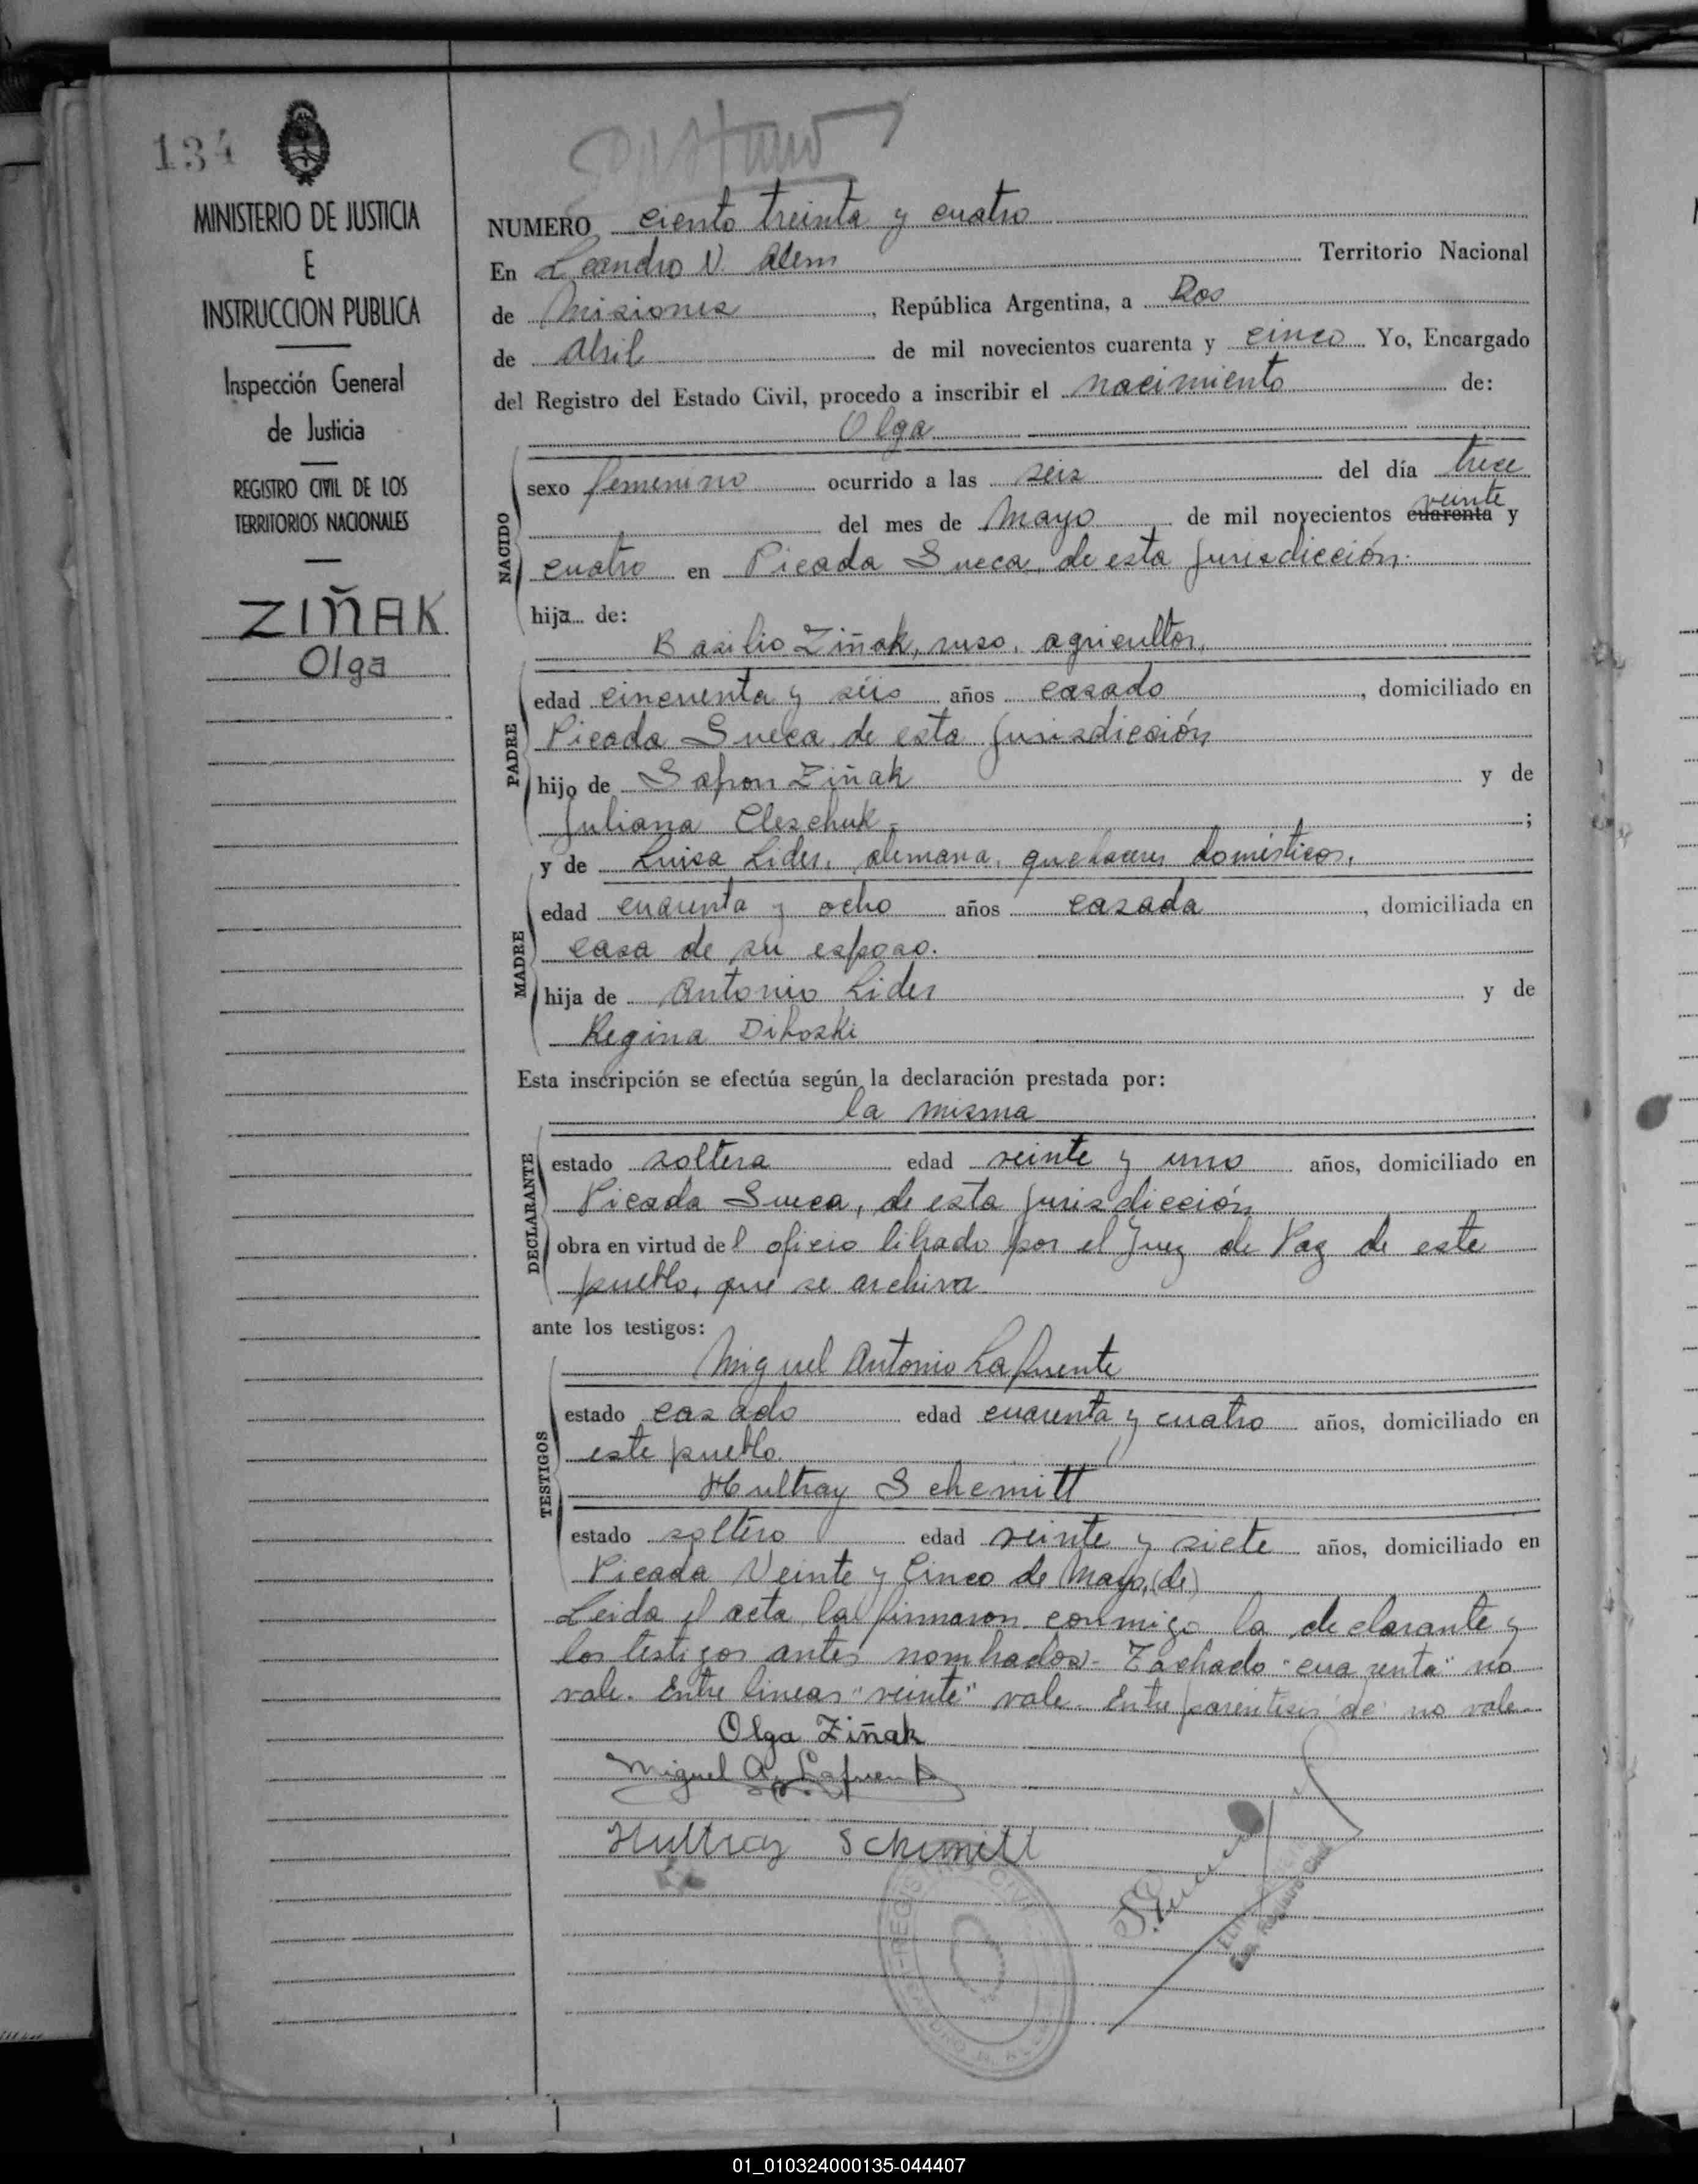 134
MINISTERIO DE JUSTICIA
E
INSTRUCCION PUBLICA
Inspección General
de Justicia
REGISTRO CIVIL DE LOS
TERRITORIOS NACIONALES
ZIÑAK
Olga
NUMERO ciento treinta y cuatro
En Leandro N. Alem Territorio Nacional
de Misiones, República Argentina, a Dos
de Abril de mil novecientos cuarenta y cinco Yo, Encargado
del Registro del Estado Civil, procedo a inscribir el nacimiento de:
Olga
NACIDO
sexo femenino ocurrido a las seis del día trece
veinte
del mes de Mayo, de mil novecientos cuarenta y
cuatro en Picada Sueca, de esta Jurisdicción.
hija de:
Basilio Ziñak, ruso, agricultor,
PADRE
edad cincuenta y séis años casado, domiciliado en
Picada Sueca, de esta Jurisdicción
hijo de Safron Ziñak y de
Juliana Cleschuk ;
y de Luisa Lider, alemana, quehaceres domésticos,
MADRE
edad cuarenta y ocho años casada, domiciliada en
casa de su esposo.
hija de Antonio Lider y de
Regina Dikoski
Esta inscripción se efectúa según la declaración prestada por:
la misma
DECLARANTE
estado soltera edad veinte y uno años, domiciliado en
Picada Sueca, de esta Jurisdicción
obra en virtud del oficio librado por el Juez de Paz de este
pueblo, que se archiva
ante los testigos:
TESTIGOS
Miguel Antonio Lafuente
estado casado edad cuarenta y cuatro años, domiciliado en
este pueblo.
Hultray Schemitt
estado soltero edad veinte y siete años, domiciliado en
Picada Veinte y Cinco de Mayo, (de)
Leida el acta la firmaron conmigo la declarante y
los testigos antes nombrados.- Tachado "cuarenta" no
vale. Entre lineas "veinte" vale. Entre parentesis "de" no vale.
Olga Ziñak
Miguel A. Lafuente
Hultray Schemitt
01_010324000135-044407